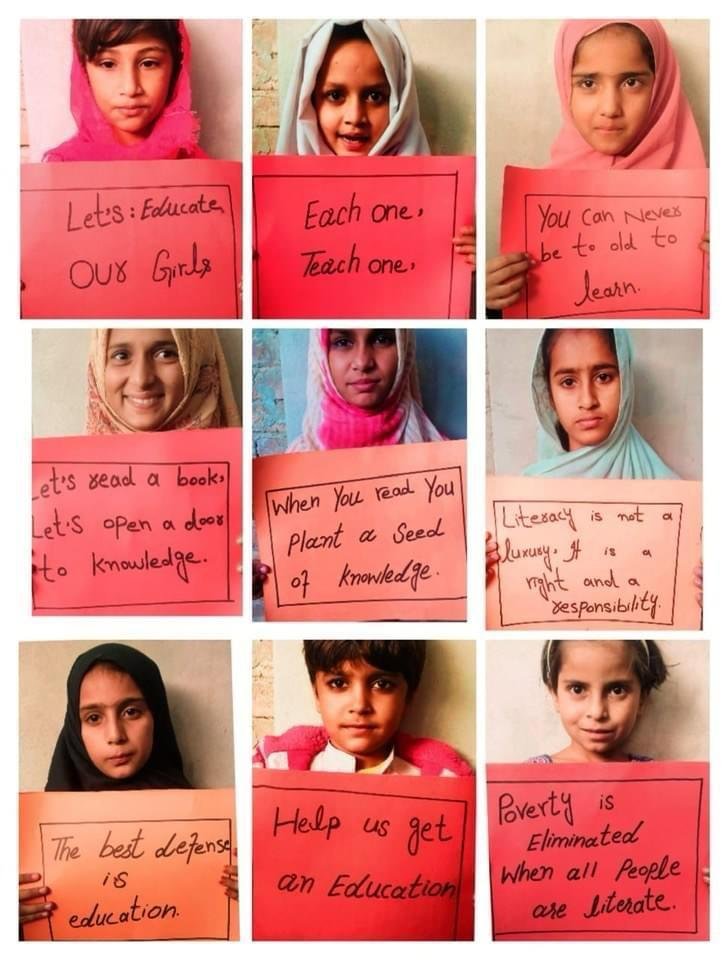 Let's: Educate
Our Girls
Each one,
Teach one,
You Can Never
be to old to
learn.
Let's read a book,
Let's open a door
to knowledge.
When You read You
Plant a Seed
of knowledge.
Literacy is not a
luxury, It is a
right and a
responsibility.
The best defense
is
education.
Help us get
an Education
Poverty is
Eliminated
When all People
are literate.